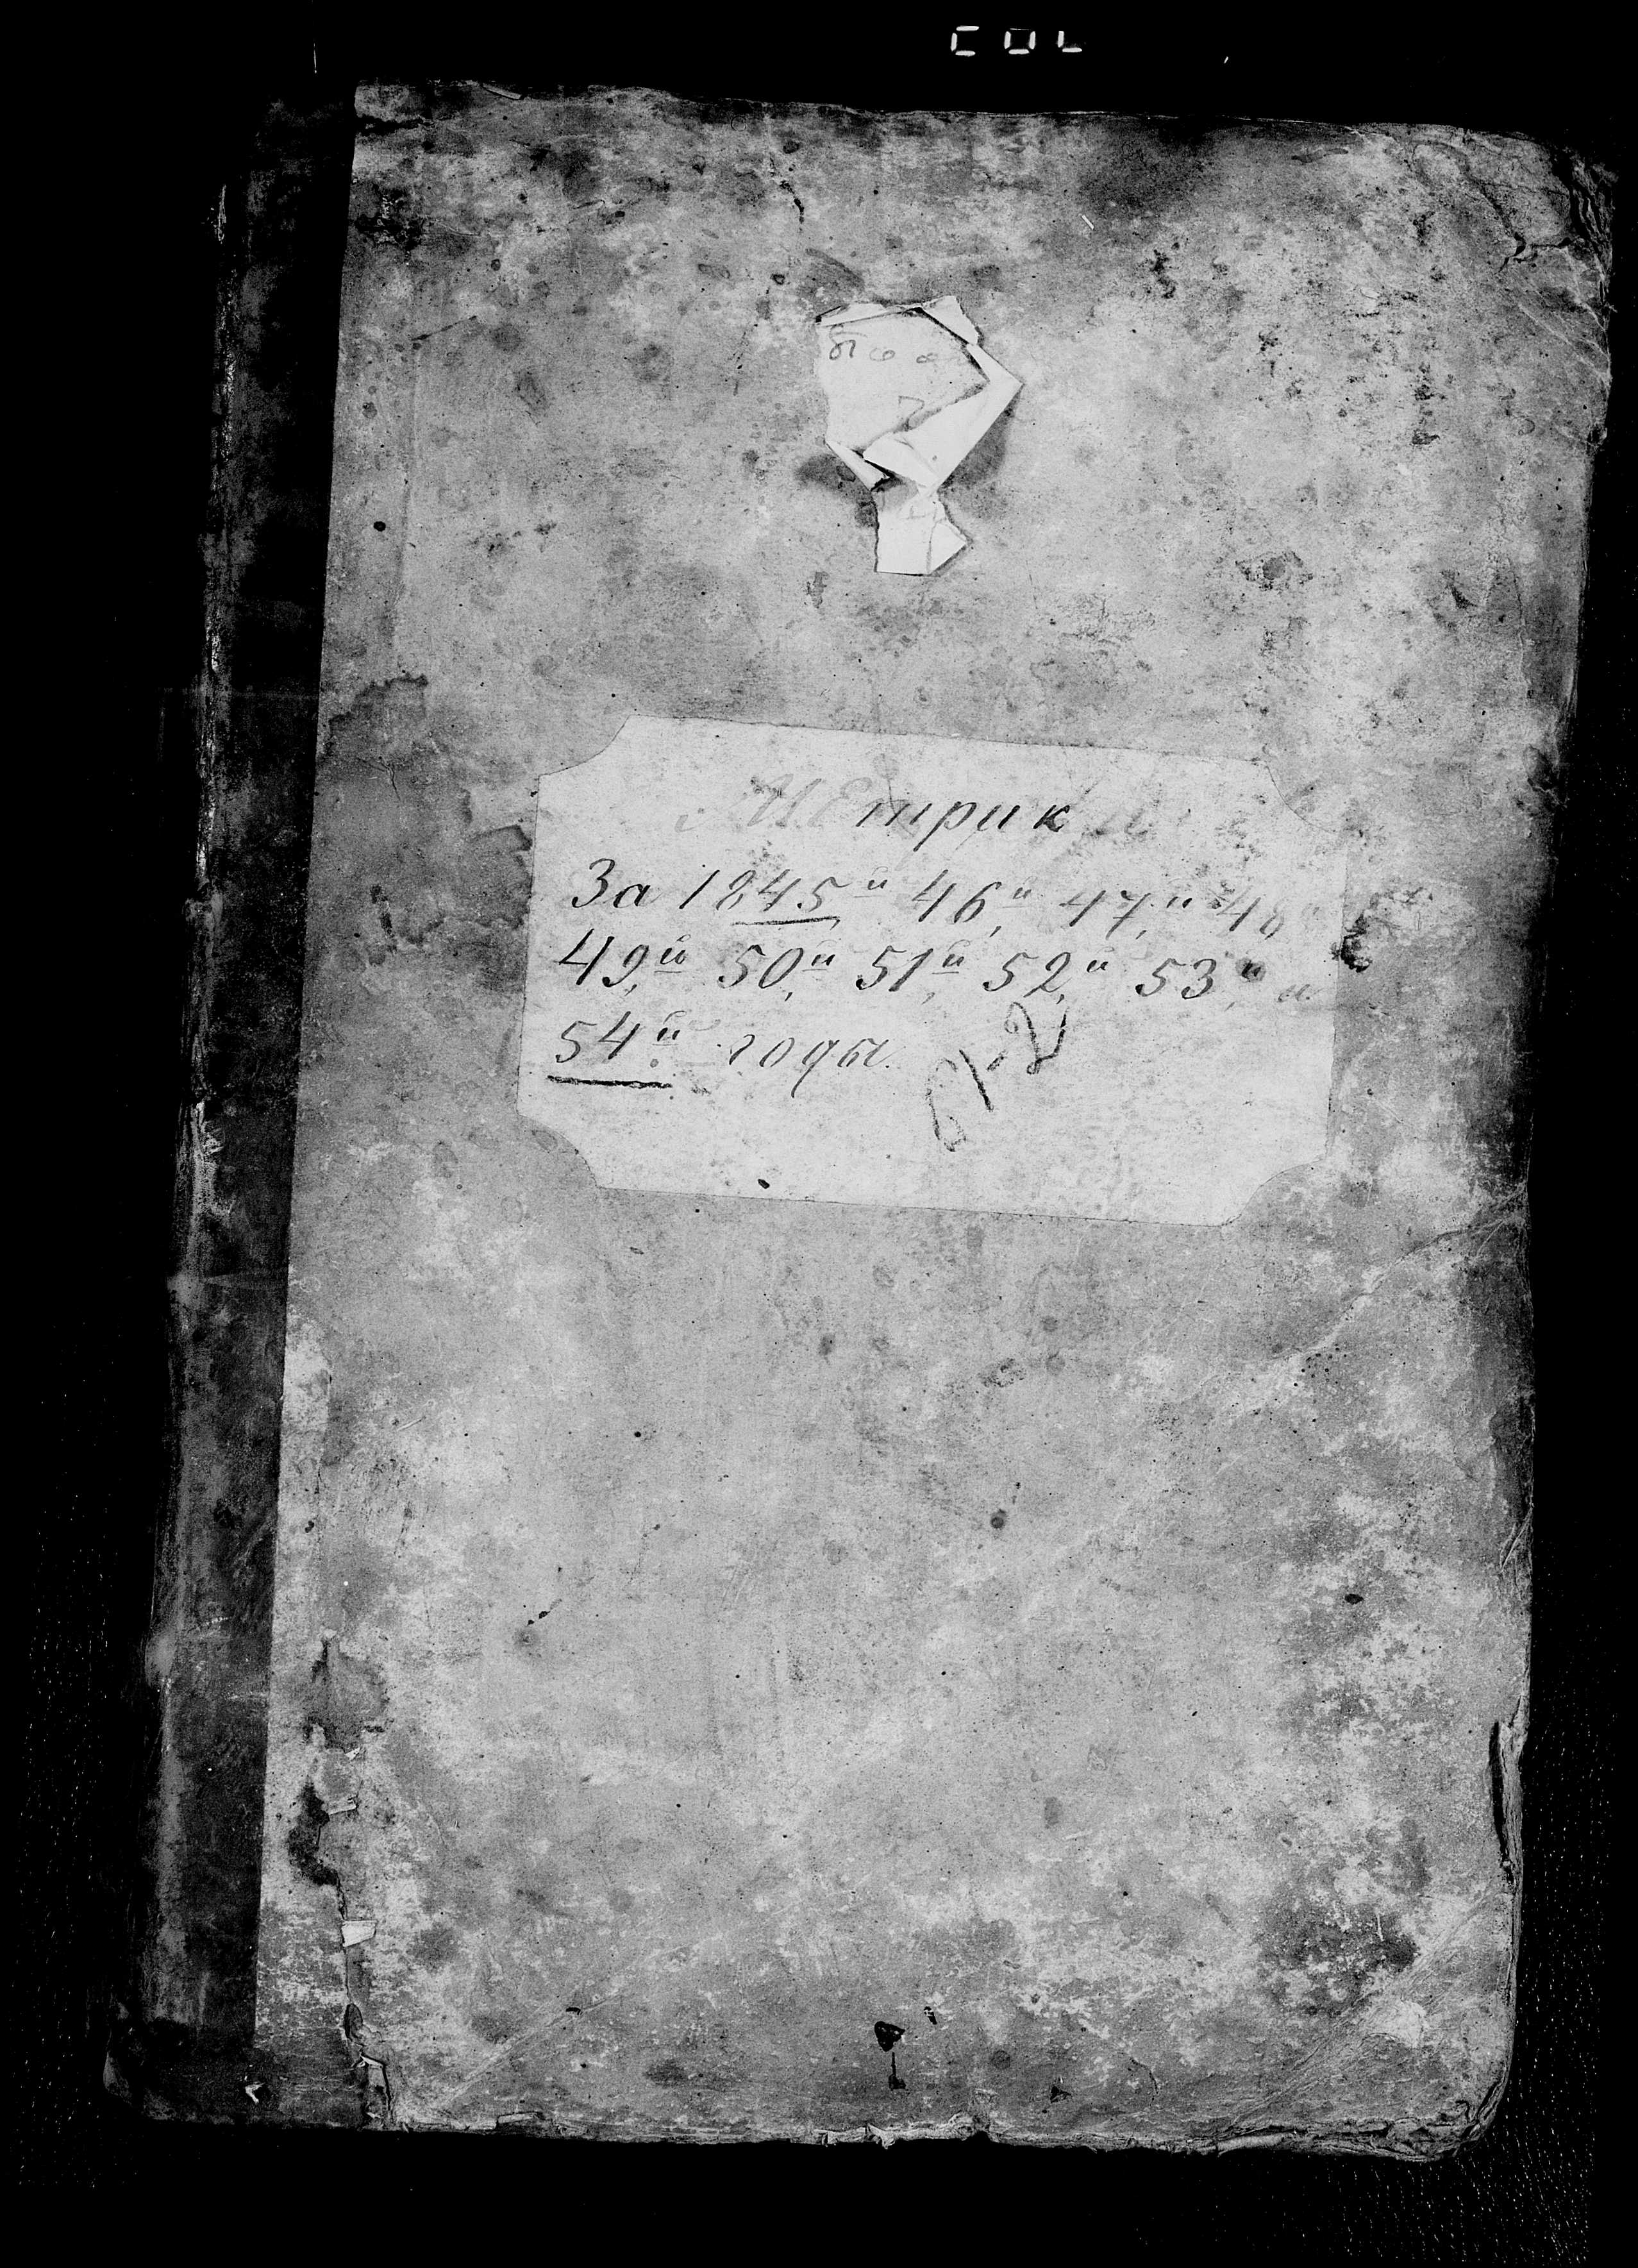 Метрик
За 1845й 46,й 47,й 48
49,й 50,й 51,й 52,й 53,й и
54.й годы.